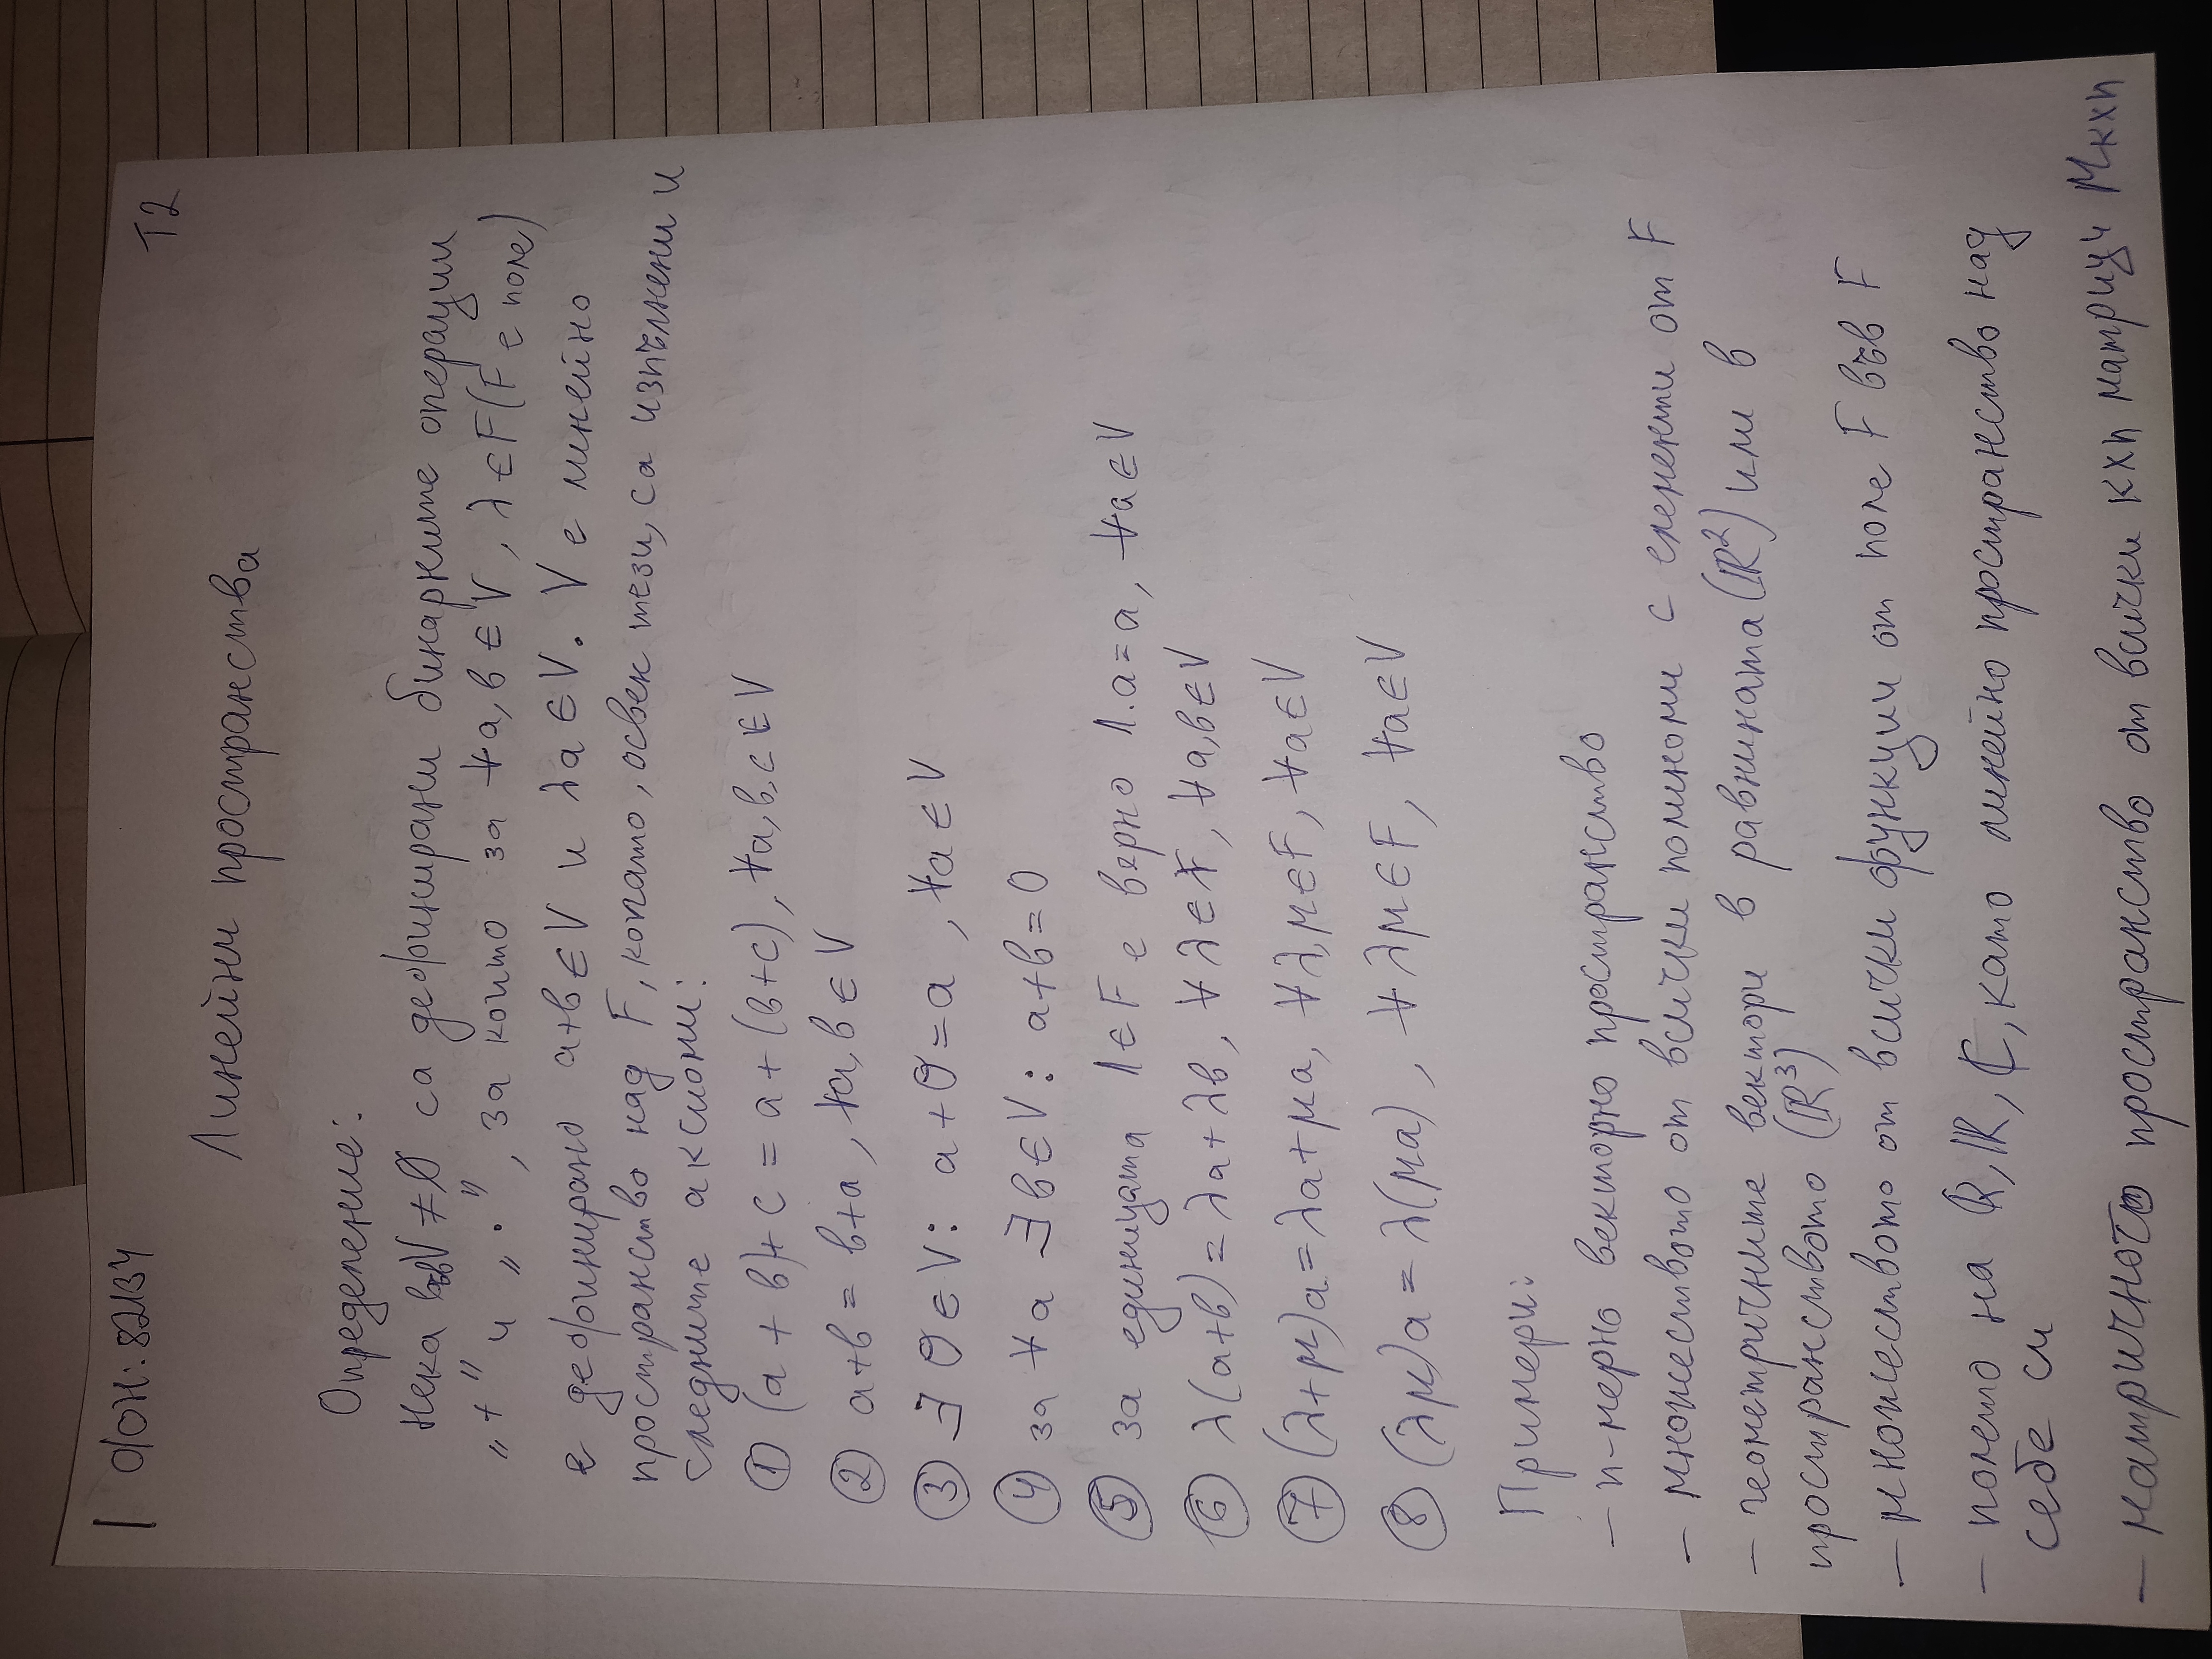 1 ф/ОН: 82134
T2
Линейни пространства
Определение:
Нека във V ≠ Ø са дефинирани бинарните операции
„+" и „·", за които за ∀a, b ∈ V, λ ∈ F (F е поле)
е дефинирано a+b ∈ V и λa ∈ V. V е линейно
пространство над F, когато, освен тези, са изпълнени и
следните аксиоми:
① (a + b)+ c = a + (b+c), ∀a, b, c ∈ V
② a+b = b+a, ∀a, b ∈ V
③ ∃ O ∈ V: a + O = a, ∀a ∈ V
④ за ∀a ∃ b ∈ V: a+b = 0
⑤ за единицата 1 ∈ F е верно 1.a = a, ∀a ∈ V
⑥ λ(a+b) = λa + λb, ∀ λ ∈ F, ∀ a, b ∈ V
⑦ (λ+μ)a = λa + μa, ∀ λ, μ ∈ F, ∀a ∈ V
⑧ (λμ)a = λ(μa), ∀ λμ ∈ F, ∀a ∈ V
Примери:
– n-мерно векторно пространство
– множеството от всички полиноми с елементи от F
– геометричните вектори в равнината (ℝ²) или в
пространството (ℝ³)
– множеството от всички функции от поле F във F
– полето на ℚ, ℝ, ℂ, като линейно пространство над
себе си
– матричното пространство от всички k×n матрици Mk×n